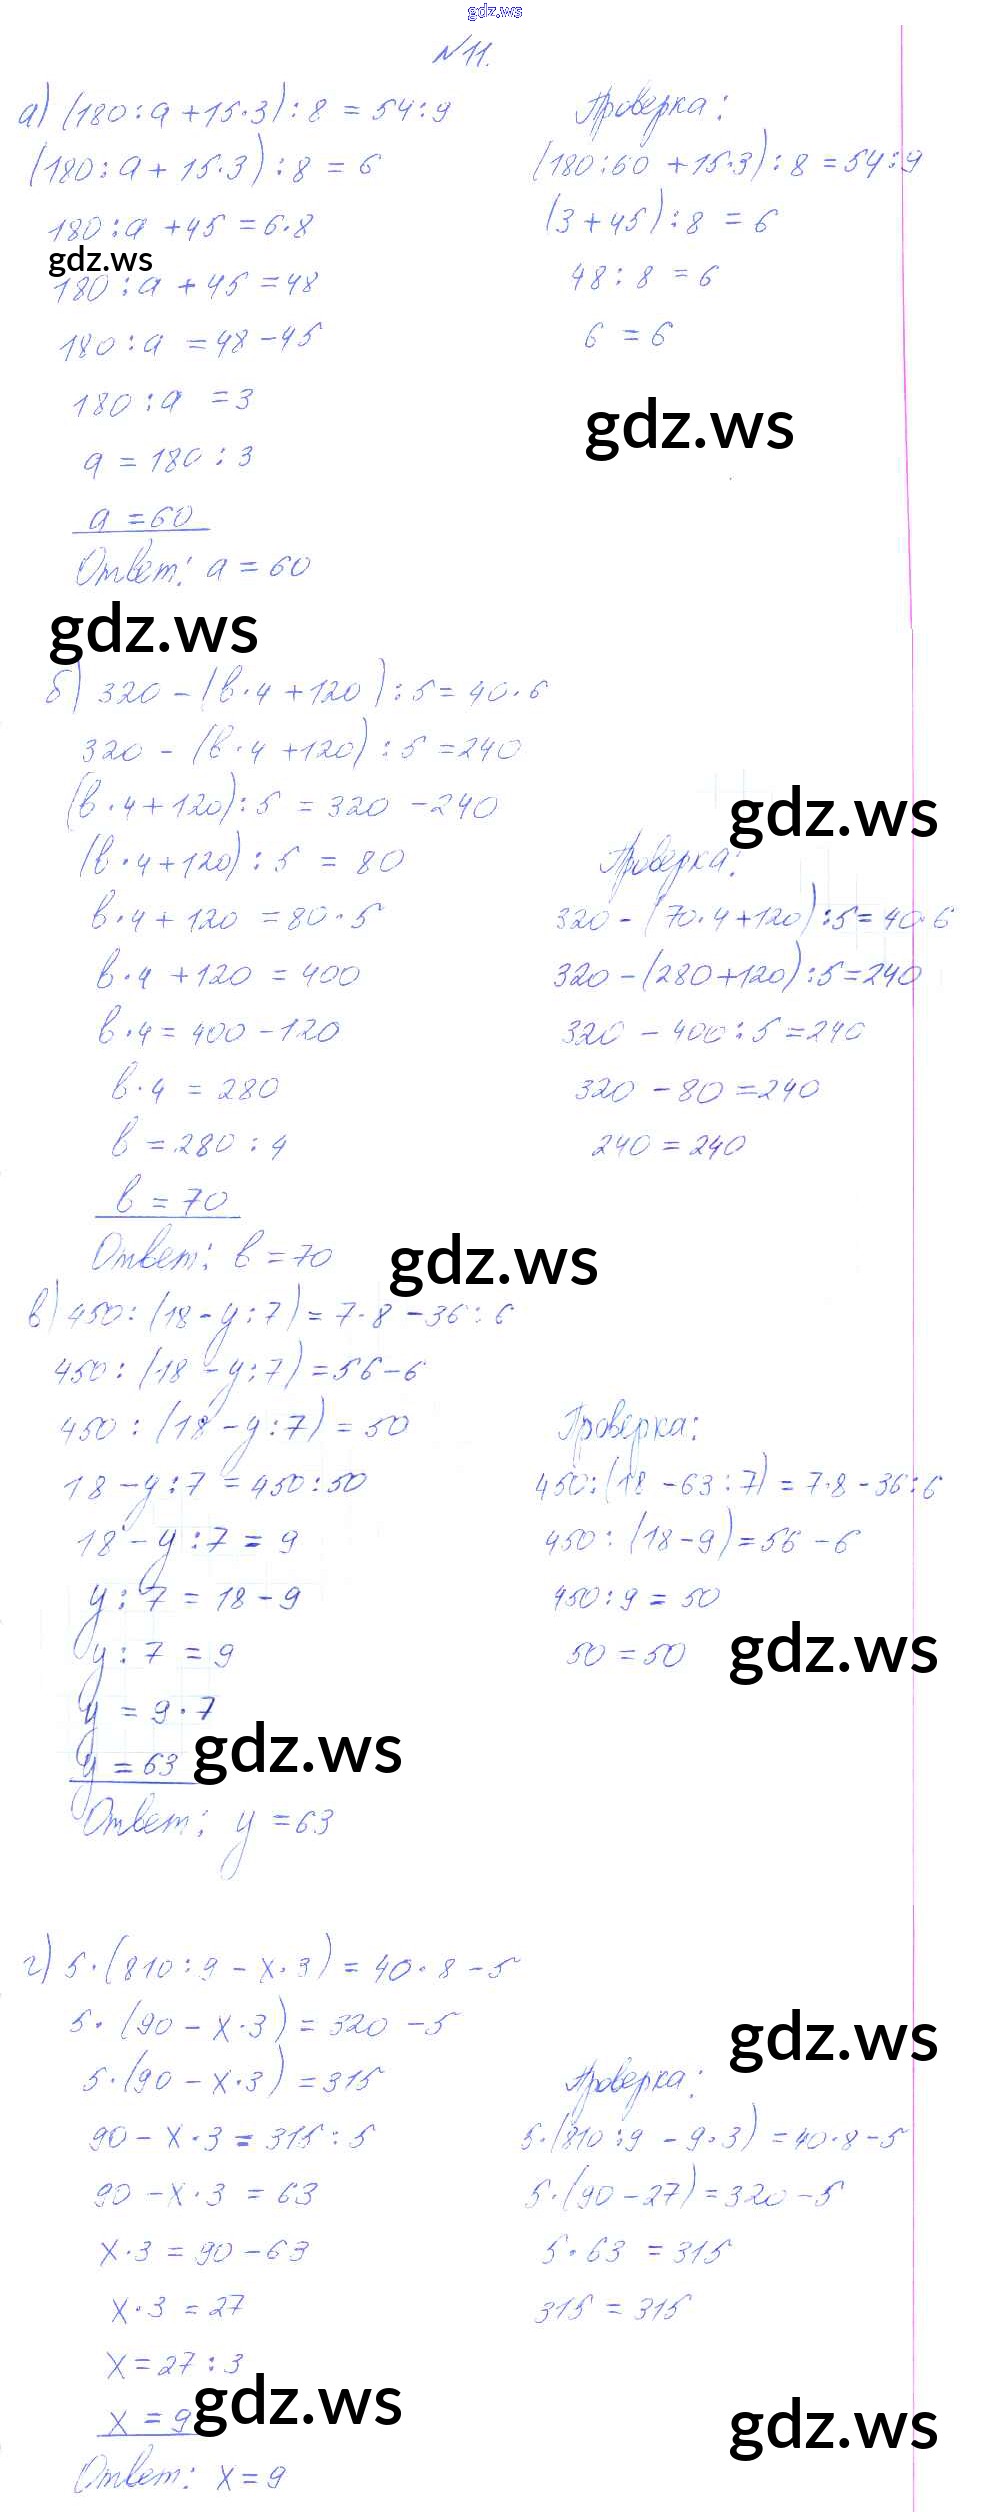 gdz.ws
№11.
а) (180:а+15·3):8=54:9
(180:а+15·3):8=6
180:а+45=6·8
gdz.ws
180:а+45=48
180:а=48-45
180:а=3
а=180:3
а=60
Ответ: а=60
Проверка:
(180:60+15·3):8=54:9
(3+45):8=6
48:8=6
6=6
gdz.ws
gdz.ws
б) 320-(b·4+120):5=40·6
320-(b·4+120):5=240
(b·4+120):5=320-240
(b·4+120):5=80
b·4+120=80·5
b·4+120=400
b·4=400-120
b·4=280
b=280:4
b=70
Ответ: b=70
gdz.ws
Проверка:
320-(70·4+120):5=40·6
320-(280+120):5=240
320-400:5=240
320-80=240
240=240
gdz.ws
в) 450:(18-y:7)=7·8-36:6
450:(18-y:7)=56-6
450:(18-y:7)=50
18-y:7=450:50
18-y:7=9
y:7=18-9
y:7=9
y=9·7
y=63
Ответ: y=63
Проверка:
450:(18-63:7)=7·8-36:6
450:(18-9)=56-6
450:9=50
50=50
gdz.ws
gdz.ws
г) 5·(810:9-x·3)=40·8-5
5·(90-x·3)=320-5
5·(90-x·3)=315
90-x·3=315:5
90-x·3=63
x·3=90-63
x·3=27
x=27:3
x=9
Ответ: x=9
gdz.ws
Проверка:
5·(810:9-9·3)=40·8-5
5·(90-27)=320-5
5·63=315
315=315
gdz.ws
gdz.ws